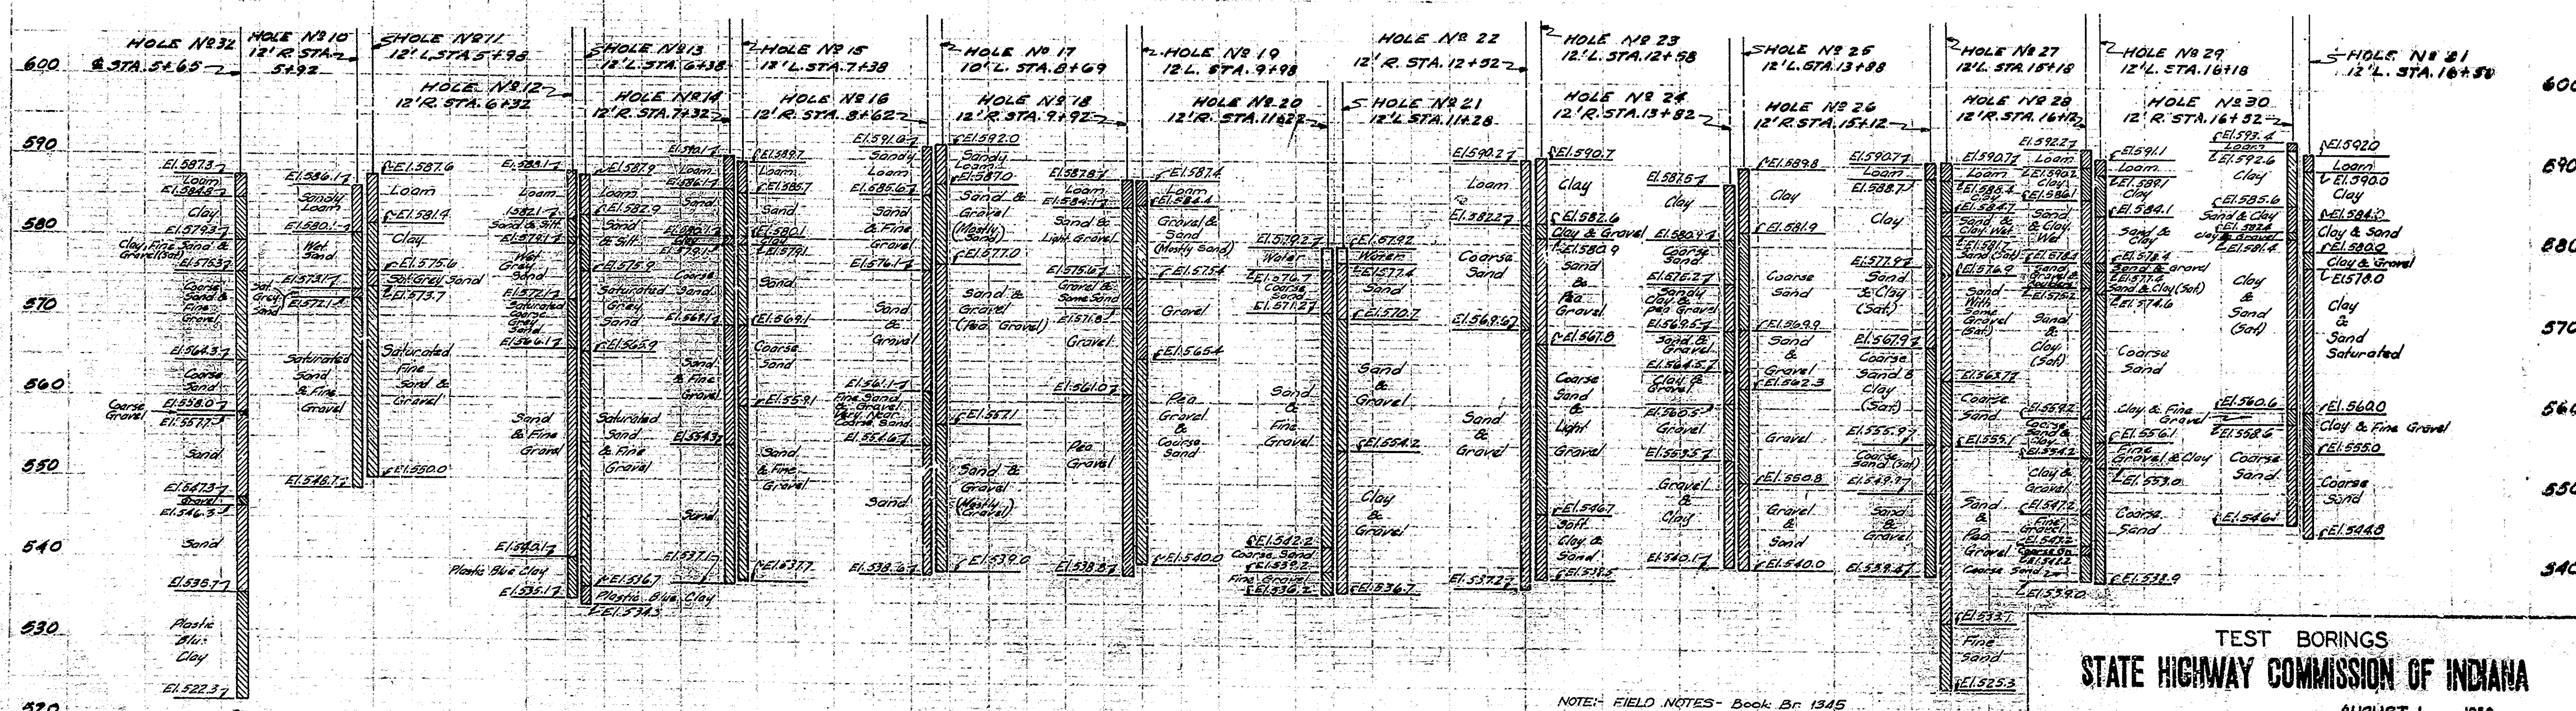 600
590
580
570
560
550
540
530
520
HOLE Nº 32
℄ STA. 5+65
El. 587.3
Loam
El. 584.8
Clay
El. 579.3
Clay, Fine Sand &
Gravel (Sat)
El. 575.3
Coarse
Sand &
Fine
Gravel
El. 564.3
Coarse
Sand
El. 558.0
Coarse
Gravel
El. 557.7
Sand
El. 547.3
Gravel
El. 546.3
Sand
Plastic
Blue
Clay
El. 522.3
HOLE Nº 10
12' R. STA.
5+92
El. 586.1
Sandy
Loam
El. 580.1
Wet
Sand
El. 573.1
Sat.
Grey
Sand
El. 572.1
Saturated
Sand
& Fine
Gravel
El. 548.7
HOLE Nº 11
12' L. STA. 5+98
El. 587.6
Loam
El. 581.9
Clay
El. 575.6
Sat. Grey Sand
El. 573.7
Saturated
Fine
Sand &
Gravel
El. 550.0
HOLE Nº 12
12' R. STA. 6+32
El. 588.1
Loam
582.1
Sand & Silt
El. 579.1
Wet
Grey
Sand
El. 572.1
Saturated
Coarse
Grey
Sand
El. 566.1
Sand
& Fine
Gravel
El. 540.1
Plastic Blue Clay
El. 535.1
HOLE Nº 13
12' L. STA. 6+38
El. 587.9
Loam
El. 582.9
Sand
& Silt
El. 575.9
Saturated
Grey
Sand
El. 565.9
Saturated
Sand
& Fine
Gravel
El. 536.7
Plastic Blue Clay
El. 534.3
HOLE Nº 14
12' R. STA. 7+32
El. 590.1
Loam
El. 586.1
Sand
El. 580.1
Clay
El. 579.1
Coarse
Sand
El. 569.1
Sand
& Fine
Gravel
El. 554.3
Sand
El. 537.1
HOLE Nº 15
12' L. STA. 7+38
El. 589.7
Loam
El. 585.7
Sand
El. 580.1
Clay
El. 579.1
Sand
El. 569.1
Coarse
Sand
El. 559.1
Sand
& Fine
Gravel
El. 537.7
HOLE Nº 16
12' R. STA. 8+62
El. 591.0
Sandy
Loam
El. 585.6
Sand
& Fine
Gravel
El. 576.1
Sand
&
Gravel
El. 561.1
Fine Sand
& Gravel
Very Near
Coarse Sand
El. 554.6
Sand
El. 538.6
HOLE Nº 17
10' L. STA. 8+69
El. 592.0
Sandy
Loam
El. 587.0
Sand &
Gravel
(Mostly
Sand)
El. 577.0
Sand &
Gravel
(Pea Gravel)
El. 557.1
Sand &
Gravel
(Mostly
Gravel)
El. 539.0
HOLE Nº 18
12' R. STA. 9+92
El. 587.8
Loam
El. 584.1
Sand &
Light Gravel
El. 575.6
Gravel &
Some Sand
El. 571.8
Gravel
El. 561.0
Pea
Gravel
El. 538.8
HOLE Nº 19
12 L. STA. 9+98
El. 587.4
Loam
El. 584.4
Gravel &
Sand
(Mostly Sand)
El. 575.4
Gravel
El. 565.4
Pea
Gravel
&
Coarse
Sand
El. 540.0
HOLE Nº 20
12' R. STA. 11+22
El. 579.2
Water
El. 576.7
Coarse
Sand
El. 571.2
Sand
&
Fine
Gravel
El. 542.2
Coarse Sand
El. 539.2
Fine Gravel
El. 536.2
HOLE Nº 21
12' L. STA. 11+28
El. 579.2
Water
El. 577.4
Sand
El. 570.7
Sand
&
Gravel
El. 554.2
Clay
&
Gravel
El. 536.7
HOLE Nº 22
12' R. STA. 12+52
El. 590.2
Loam
El. 582.2
Coarse
Sand
El. 569.6
Sand
&
Gravel
El. 537.2
HOLE Nº 23
12' L. STA. 12+58
El. 590.7
Clay
El. 582.6
Clay & Gravel
El. 580.9
Sand
&
Pea
Gravel
El. 567.8
Coarse
Sand
&
Light
Gravel
El. 546.7
Soft
Clay &
Sand
El. 538.5
HOLE Nº 24
12' R. STA. 13+82
El. 587.5
Clay
El. 580.9
Coarse
Sand
El. 576.2
Sandy
Clay &
Pea Gravel
El. 569.5
Sand &
Gravel
El. 564.5
Clay &
Gravel
El. 560.5
Gravel
El. 553.5
Gravel
&
Clay
El. 540.1
HOLE Nº 25
12' L. STA. 13+88
El. 589.8
Clay
El. 581.9
Coarse
Sand
El. 569.9
Sand
&
Gravel
El. 562.3
Gravel
El. 550.8
Gravel
&
Sand
El. 540.0
HOLE Nº 26
12' R. STA. 15+12
El. 590.7
Loam
El. 588.7
Clay
El. 577.9
Sand
& Clay
(Sat.)
El. 567.9
Coarse
Sand &
Clay
(Sat.)
El. 555.9
Coarse
Sand (Sat)
El. 549.9
Sand
&
Gravel
HOLE Nº 27
12' L. STA. 15+18
El. 590.7
Loam
El. 588.4
Clay
El. 584.7
Sand &
Clay Wet
El. 581.7
Sand (Sat)
El. 576.9
Sand
With
Some
Gravel
(Sat.)
El. 563.7
Coarse
Sand
El. 555.1
Sand
&
Pea
Gravel
Coarse Sand
El. 533.7
Fine
Sand
El. 525.3
HOLE Nº 28
12' R. STA. 16+12
El. 592.2
Loam
El. 590.2
Clay
El. 586.1
Sand
& Clay
Wet
El. 578.2
Sand
Gravel &
Boulders
El. 575.2
Sand
&
Clay
(Sat)
El. 559.2
Coarse
Sand &
Clay
El. 554.2
Clay &
Gravel
El. 547.2
Fine
Gravel
El. 539.0
HOLE Nº 29
12' L. STA. 16+18
El. 591.1
Loam
El. 589.1
Clay
El. 584.1
Sand &
Clay
El. 578.4
Sand & gravel
El. 577.6
Sand & Clay (Sat.)
El. 574.6
Coarse
Sand
El. 556.1
Fine
Gravel & Clay
El. 553.0
Coarse
Sand
El. 538.9
HOLE Nº 30
12' R. STA. 16+52
El. 593.4
Loam
El. 592.6
Clay
El. 585.6
Sand & Clay
El. 582.6
Clay & Gravel
El. 581.4
Clay
&
Sand
(Sat)
El. 560.6
Clay & Fine
Gravel
El. 558.6
Coarse
Sand
HOLE Nº 31
12' L. STA. 16+58
El. 592.0
Loam
El. 590.0
Clay
El. 584.0
Clay & Sand
El. 580.0
Clay & Gravel
El. 578.0
Clay
&
Sand
Saturated
El. 560.0
Clay & Fine Gravel
El. 555.0
Coarse
Sand
El. 544.8
600
590
580
570
560
550
540
NOTE:- FIELD NOTES- Book Br. 1345
TEST BORINGS
STATE HIGHWAY COMMISSION OF INDIANA
AUGUST 1